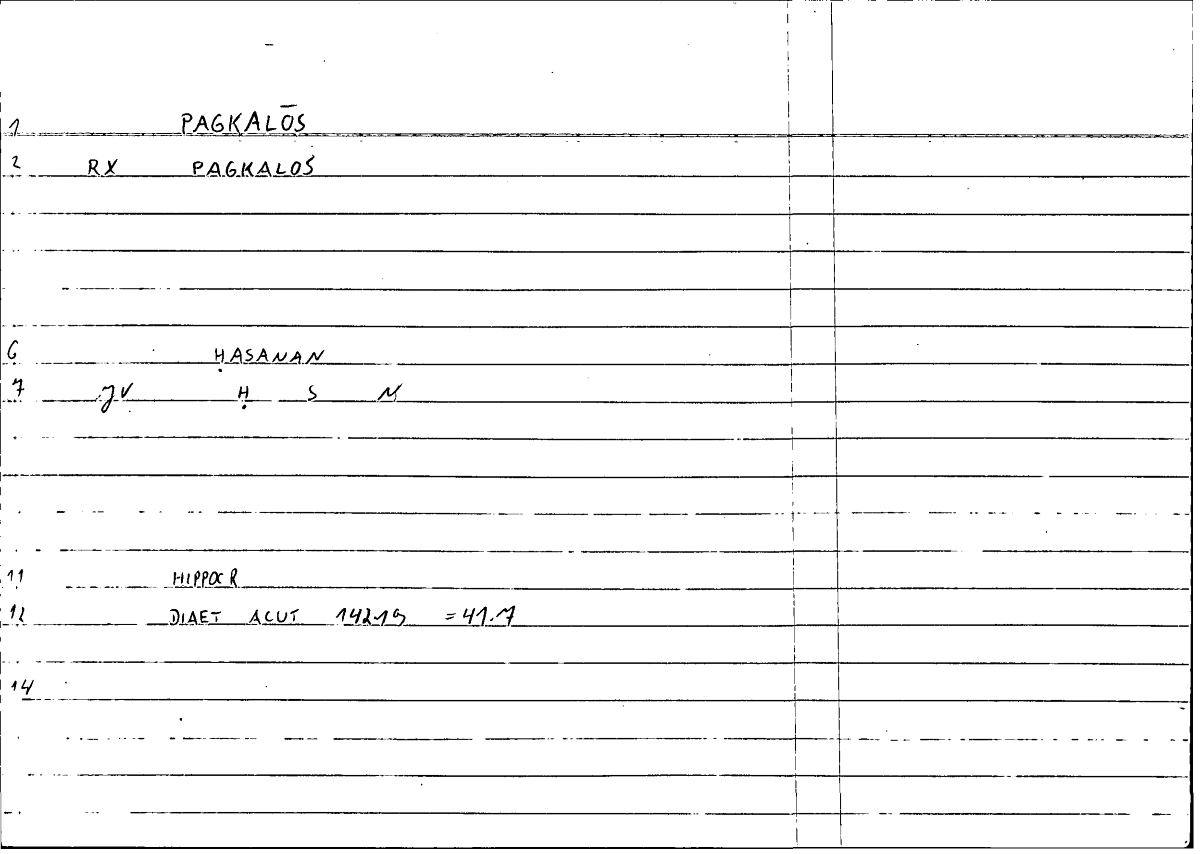 1 PAGKALŌS
2 RX PAGKALOS
6 ḤASANAN
7 JV Ḥ S N
11 HIPPOCR
12 DIAET ACUT 142.19 =41.7
14